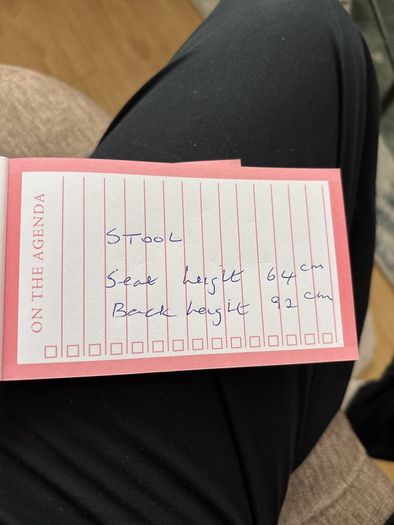 ON THE AGENDA
STOOL
Seat height 64 cm
Back height 92 cm